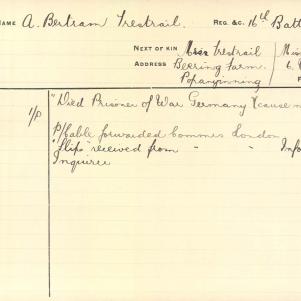 NAME A. Bertram Trestrail. REG. &C. 16th Batt
NEXT OF KIN Miss Trestrail Miss
ADDRESS Beering Farm. 6.
Popanyinning
"Died Prisoner of War Germany (cause n
1/D
P/Cable forwarded Commiss London
"Slip" received from " " Info
Inquirer